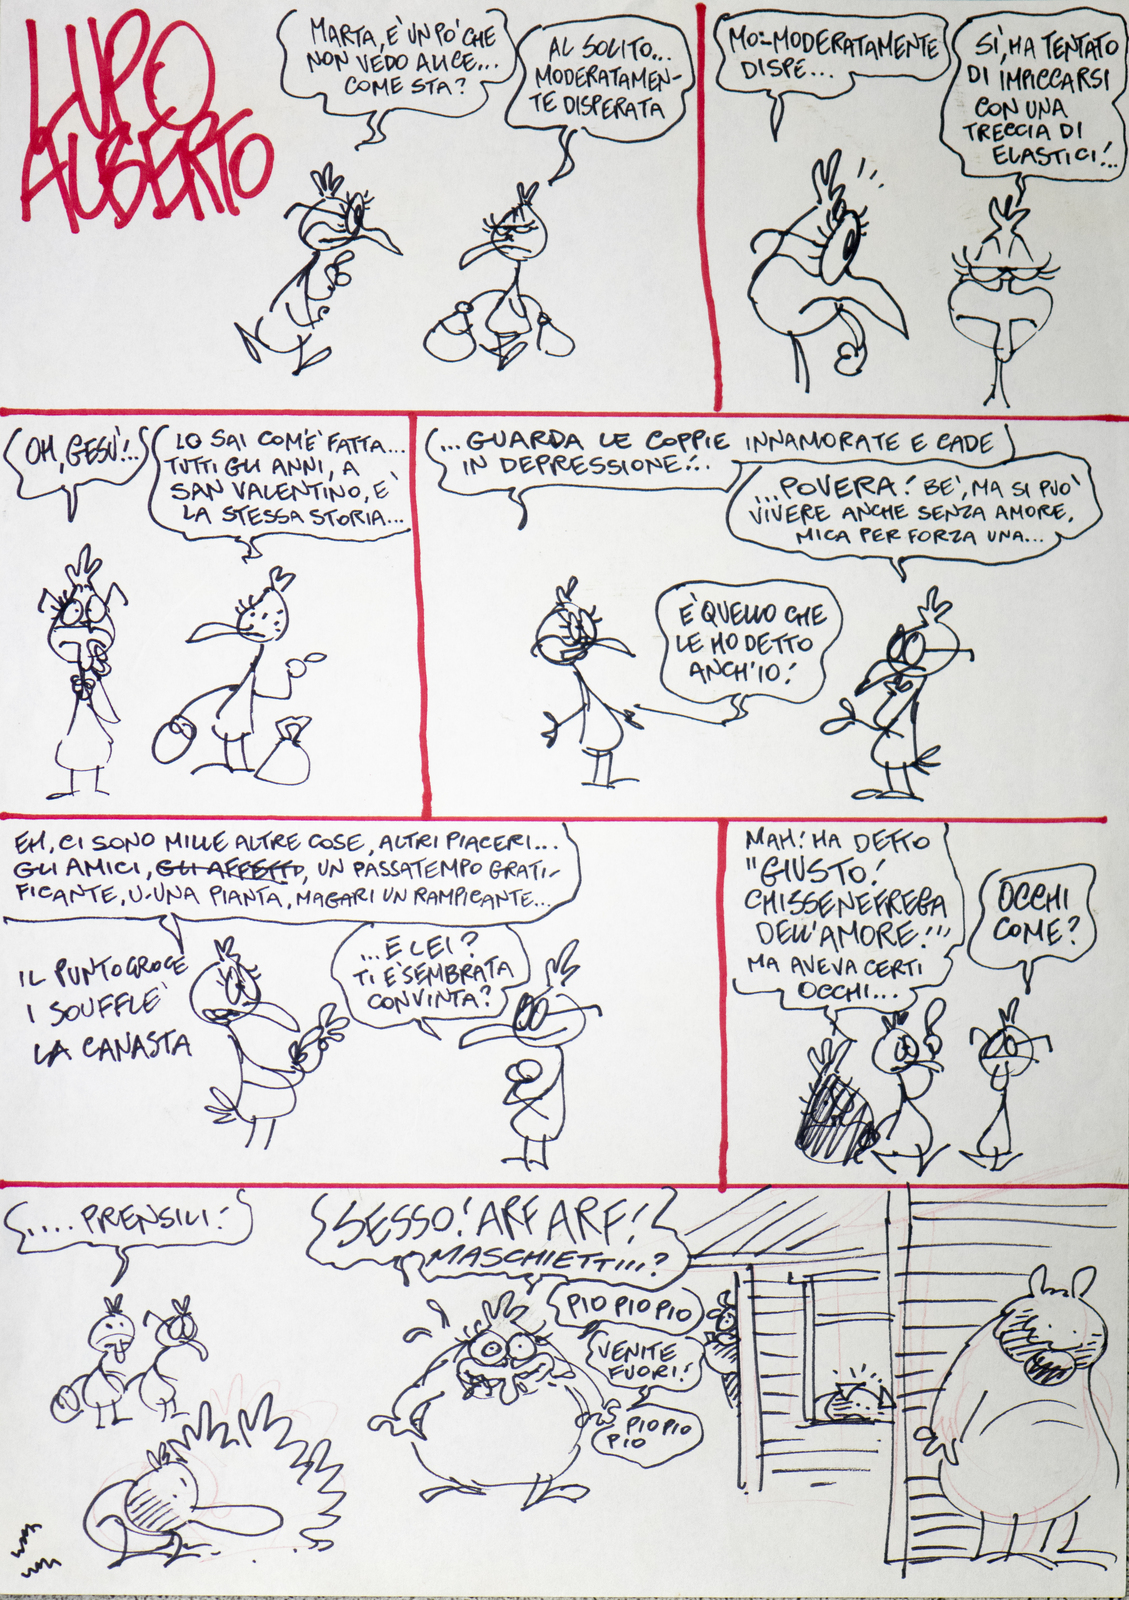 LUPO
ALBERTO
MARTA, E' UN PO' CHE
NON VEDO ALICE...
COME STA?
AL SOLITO...
MODERATAMEN-
TE DISPERATA
MO-MODERATAMENTE
DISPE...
SÌ, HA TENTATO
DI IMPICCARSI
CON UNA
TRECCIA DI
ELASTICI!...
OH, GESU'!..
LO SAI COM'E' FATTA...
TUTTI GLI ANNI, A
SAN VALENTINO, E'
LA STESSA STORIA...
...GUARDA LE COPPIE INNAMORATE E CADE
IN DEPRESSIONE!..
...POVERA! BE', MA SI PUO'
VIVERE ANCHE SENZA AMORE,
MICA PER FORZA UNA...
E' QUELLO CHE
LE HO DETTO
ANCH'IO!
EH, CI SONO MILLE ALTRE COSE, ALTRI PIACERI...
GLI AMICI, GLI AFFETTI, UN PASSATEMPO GRATI-
FICANTE, U-UNA PIANTA, MAGARI UN RAMPICANTE...
IL PUNTOCROCE
I SOUFFLE'
LA CANASTA
...E LEI?
TI E' SEMBRATA
CONVINTA?
MAH! HA DETTO
"GIUSTO!
CHISSENEFREGA
DELL'AMORE!"
MA AVEVA CERTI
OCCHI...
OCCHI
COME?
....PRENSILI!
SESSO! ARF ARF!
MASCHIETTIIII...?
PIO PIO PIO
VENITE
FUORI!
PIO PIO
PIO